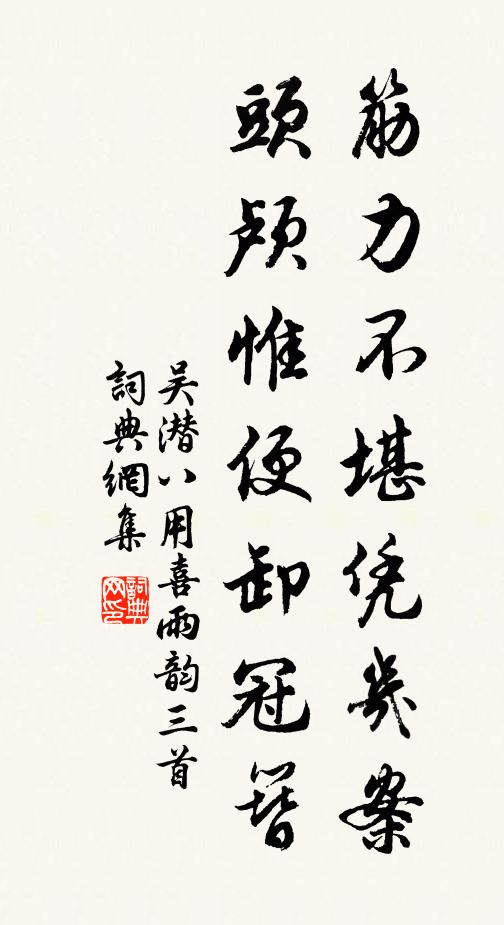 筋力不堪凭幾案
頭颅惟便卸冠簪
吴潜八用喜雨韵三首
詞典網集
詞典網印